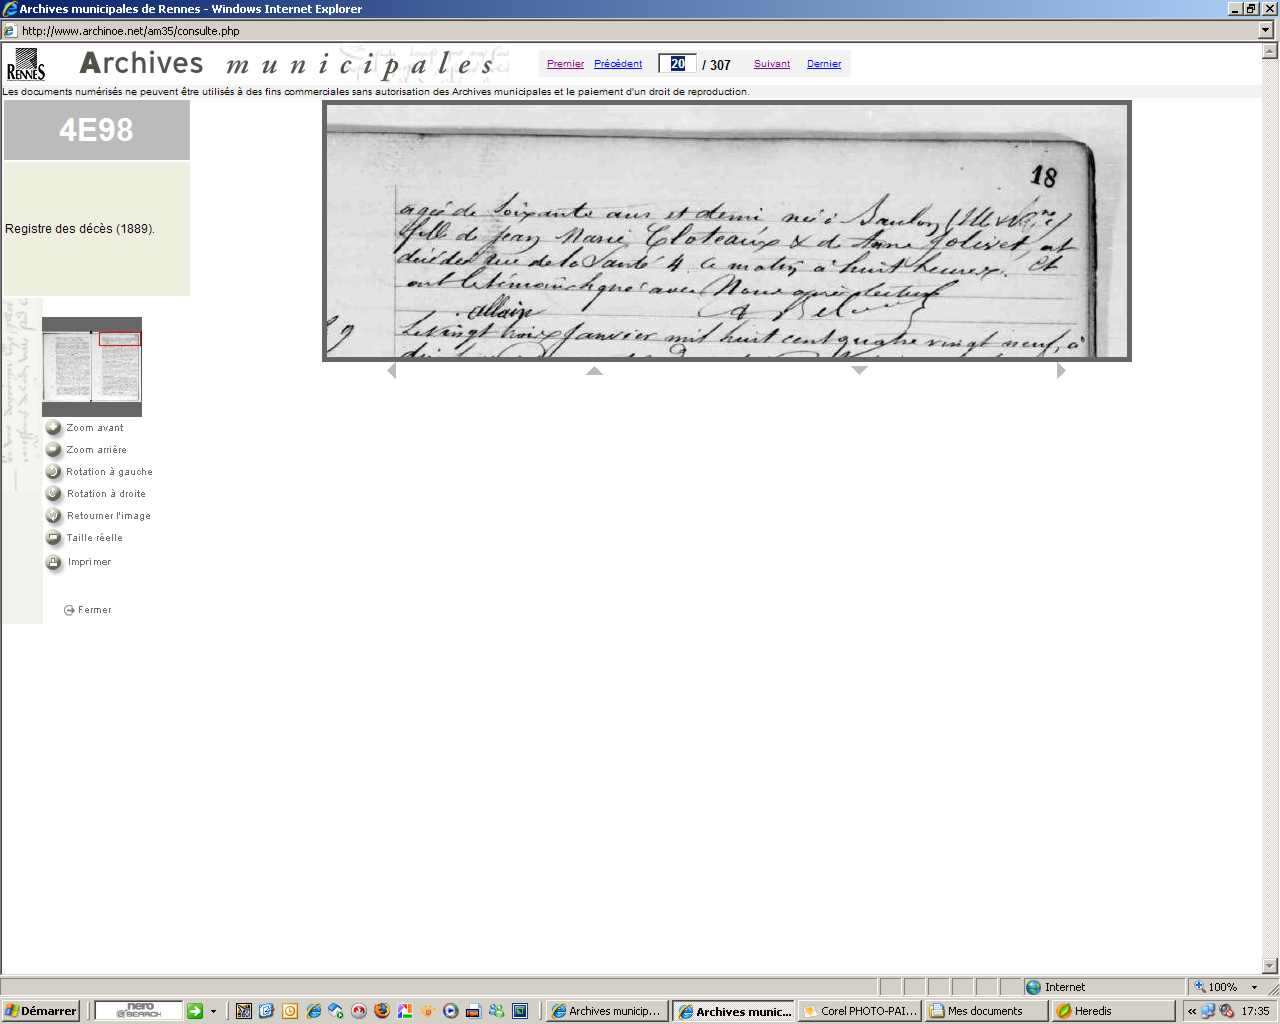 Archives municipales de Rennes - Windows Internet Explorer
http://www.archinoe.net/am35/consulte.php
RENNES
Archives municipales
Premier Précédent 20 / 307 Suivant Dernier
Les documents numérisés ne peuvent être utilisés à des fins commerciales sans autorisation des Archives municipales et le paiement d'un droit de reproduction.
4E98
Registre des décès (1889).
18
agée de soixante ans et demi née à Baulon (Ille & V
fille de Jean Marie Cloteaux & de Anne Jolivet, est
décédée rue de la Santé 4 ce matin à huit heures. Et
ont le témoin signé avec Nous après lecture
Allain
Le vingt trois Janvier mil huit cent quatre vingt neuf, à
Zoom avant
Zoom arrière
Rotation à gauche
Rotation à droite
Retourner l'image
Taille réelle
Imprimer
Fermer
Internet
100%
Démarrer
nero
SEARCH
Archives municip...
Archives munic...
Corel PHOTO-PAI...
Mes documents
Heredis
«
17:35